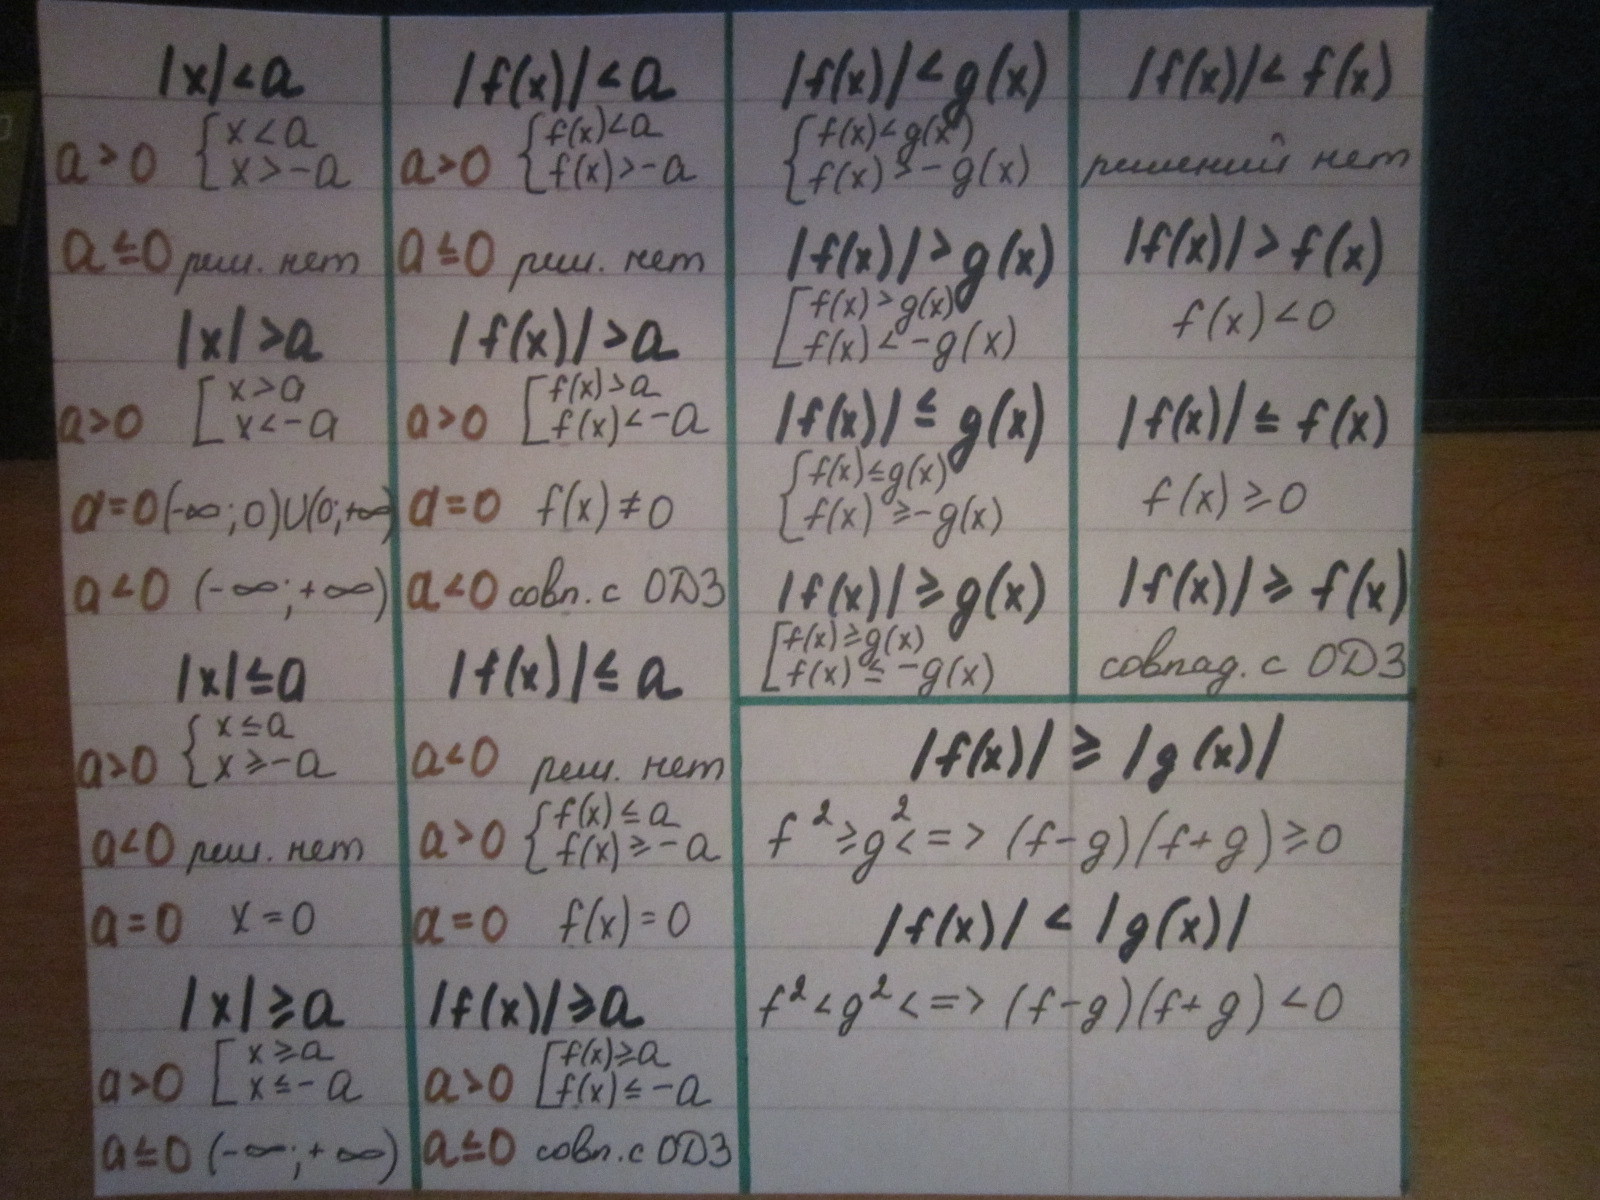 |x|<a
a>0 { x<a
x>-a
a≤0 реш. нет
|x|>a
a>0 [ x>a
x<-a
a=0 (-∞;0)∪(0;+∞)
a<0 (-∞;+∞)
|x|≤a
a>0 { x≤a
x≥-a
a<0 реш. нет
a=0 x=0
|x|≥a
a>0 [ x≥a
x≤-a
a≤0 (-∞;+∞)
|f(x)|<a
a>0 { f(x)<a
f(x)>-a
a≤0 реш. нет
|f(x)|>a
a>0 [ f(x)>a
f(x)<-a
a=0 f(x)≠0
a<0 совп. с ОДЗ
|f(x)|≤a
a<0 реш. нет
a>0 { f(x)≤a
f(x)≥-a
a=0 f(x)=0
|f(x)|≥a
a>0 [ f(x)≥a
f(x)≤-a
a≤0 совп. с ОДЗ
|f(x)|<g(x)
{ f(x)<g(x)
f(x)>-g(x)
|f(x)|>g(x)
[ f(x)>g(x)
f(x)<-g(x)
|f(x)|≤g(x)
{ f(x)≤g(x)
f(x)≥-g(x)
|f(x)|≥g(x)
[ f(x)≥g(x)
f(x)≤-g(x)
|f(x)|<f(x)
решений нет
|f(x)|>f(x)
f(x)<0
|f(x)|≤f(x)
f(x)≥0
|f(x)|≥f(x)
совпад. с ОДЗ
|f(x)|≥|g(x)|
f²≥g² <=> (f-g)(f+g)≥0
|f(x)|<|g(x)|
f²<g² <=> (f-g)(f+g)<0